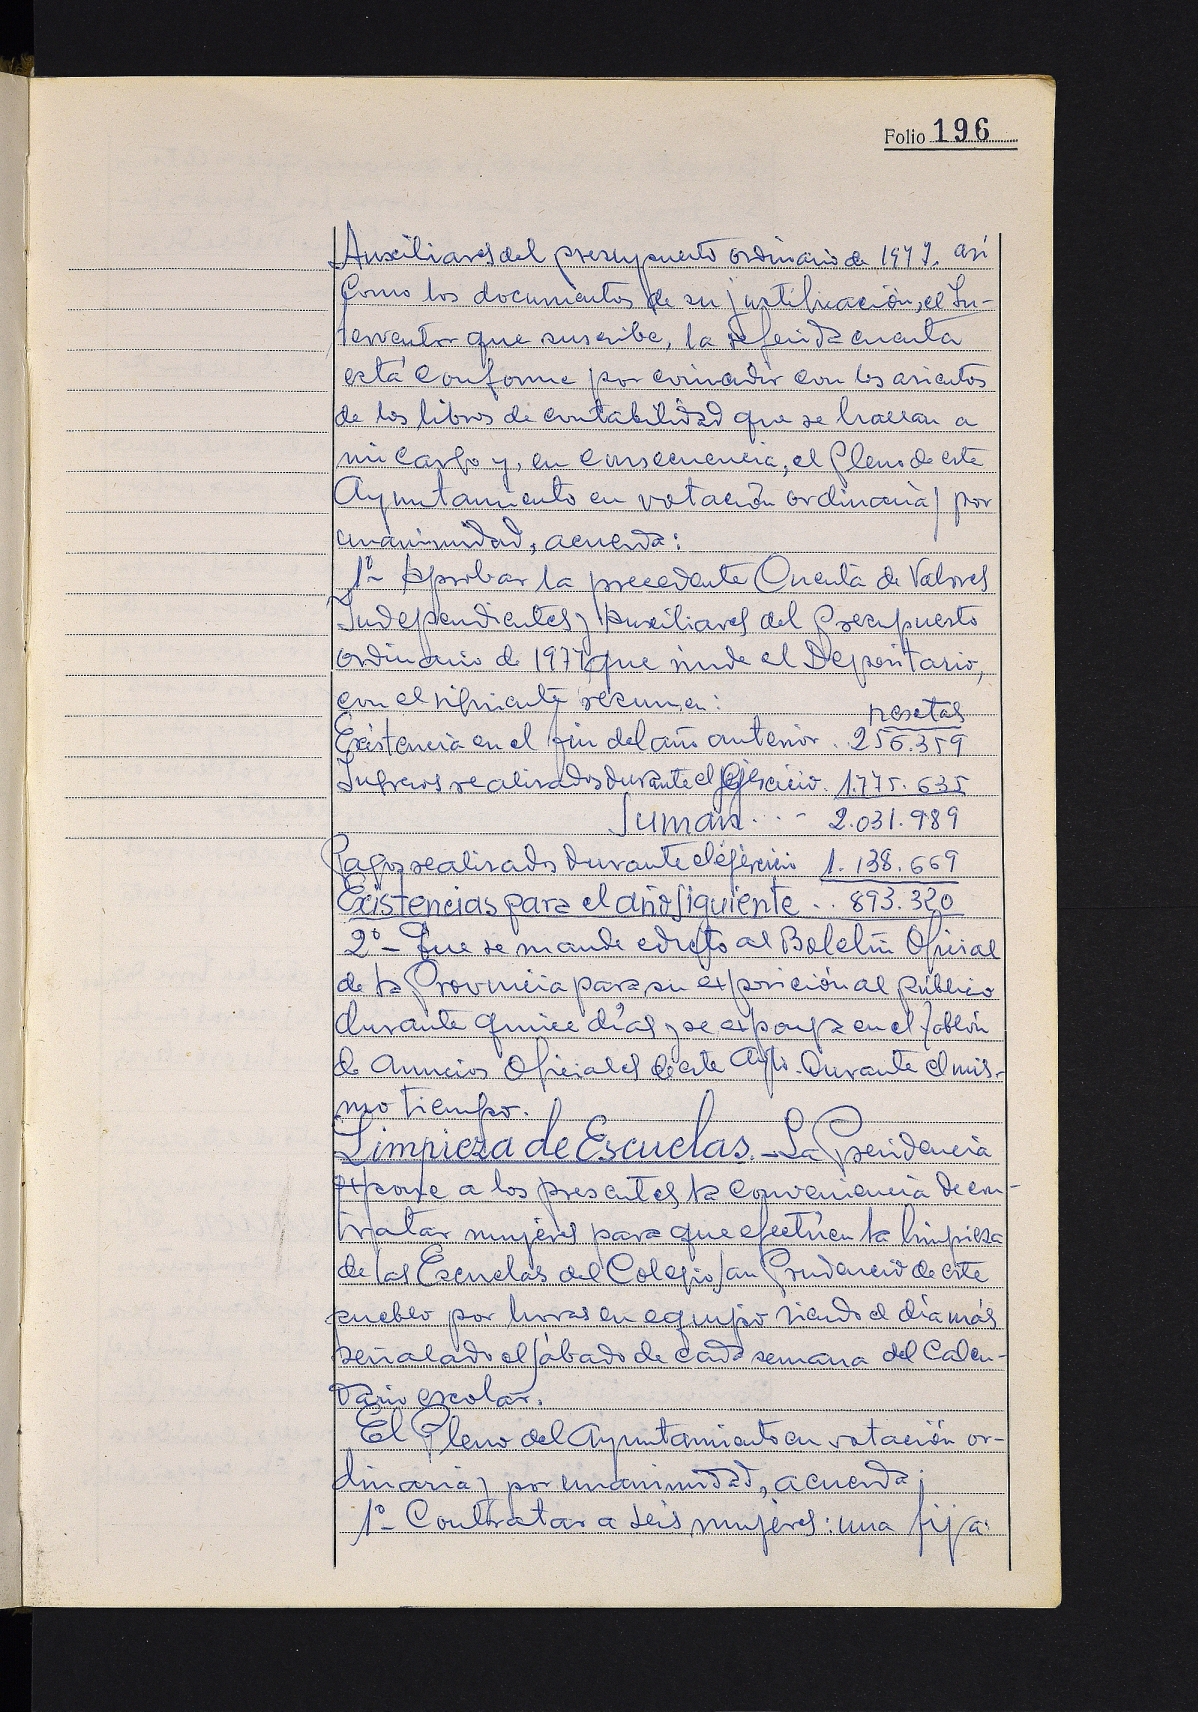 Folio 196
Auxiliares del presupuesto ordinario de 1977. asi
como los documentos de su justificación, el In-
terventor que suscribe, la referida cuenta
está conforme por coincidir con los asientos
de los libros de contabilidad que se hallan a
mi cargo y, en consecuencia, el Pleno de este
Ayuntamiento en votación ordinaria y por
unanimidad, acuerda:
1º- Aprobar la precedente Cuenta de Valores
Independientes y Auxiliares del Presupuesto
ordinario de 1977 que rinde el Depositario,
con el siguiente resumen:
pesetas
Existencia en el fin del año anterior. 256.359
Ingresos realizados durante el Ejercicio. 1.775.635
Suman... - 2.031.989
Pagos realizados durante el ejercicio 1.138.669
Existencias para el año siguiente .. 893.320
2º- Que se mande edicto al Boletín Oficial
de la Provincia para su exposición al público
durante quince días y se exponga en el tablón
de Anuncios Oficiales de este Ayto. Durante el mis-
mo tiempo.
Limpieza de Escuelas.- La Presidencia
expone a los presentes, la conveniencia de con-
tratar mujeres para que efectúen la limpieza
de las Escuelas del Colegio San Prudencio de este
pueblo por horas en equipo siendo el día más
señalado el sábado de cada semana del Calen-
dario escolar.
El Pleno del Ayuntamiento en votación or-
dinaria y por unanimidad, acuerda:
1º- Contratar a seis mujeres: una fija